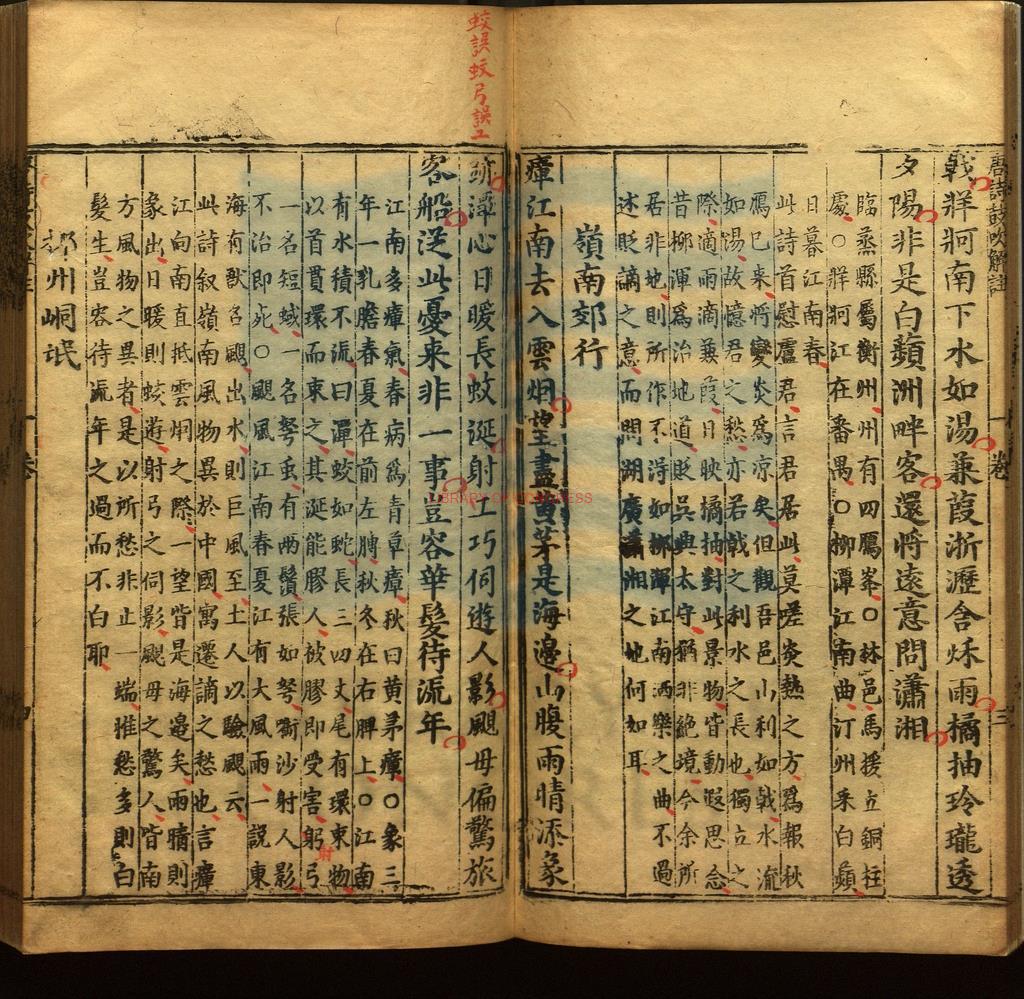 唐詩鼓吹解註
一卷
三
戟牂牁南下水如湯蒹葭淅瀝含秋雨橘柚玲瓏透
夕陽非是白蘋洲畔客還將遠意問瀟湘
臨蒸縣屬衡州有四鴈峯○林邑馬援立銅柱
處○牂牁江在番禺○柳潭江南曲汀州采白蘋
日暮江南春
此詩首慰盧君言君居此莫嗟炎熱之方為報秋
鴈已来將變炎為凉矣但觀吾邑山利如戟水流
如湯故憶君之愁亦若戟之利水之長也獨立之
際適雨滴蒹葭日映橘柚對此景物皆動遐思念
昔柳渾為治地道貶吳興太守猶非絶境今余所
居非地則所作不淂如柳渾江南洒樂之曲不過
述貶謫之意而問湖廣瀟湘之地何如耳
嶺南郊行
瘴江南去入雲烟望盡黄茅是海邉山腹雨晴添象
跡潭心日暖長蛟涎射工巧伺遊人影颶母偏驚旅
客船從此憂来非一事豈容華髮待流年
江南多瘴氣春病為青草瘴秋曰黄茅瘴○象三
年一乳膽春夏在前左膊秋冬在右脾上○江南
有水積不流曰潭蛟如蛇長三四丈尾有環束物
以首貫環而束之其涎能膠人被膠即受害躬弓
射
一名短蜮一名弩䖝有两鬚張如弩衝沙射人影
不治即死○颶風江南春夏江有大風雨一説東
海有獸名颶出水則巨風至土人以驗颶云
此詩叙嶺南風物異於中國寓遷謫之愁也言瘴
江向南直抵雲烟之際一望皆是海邉矣雨晴則
象出日暖則蛟遊射弓之伺影颶母之驚人皆南
方風物之異者是以所愁非止一端惟愁多則白
髮生豈容待流年之過而不白耶
柳州峒氓
一卷
蛟誤蚊弓誤工
LIBRARY OF CONGRESS